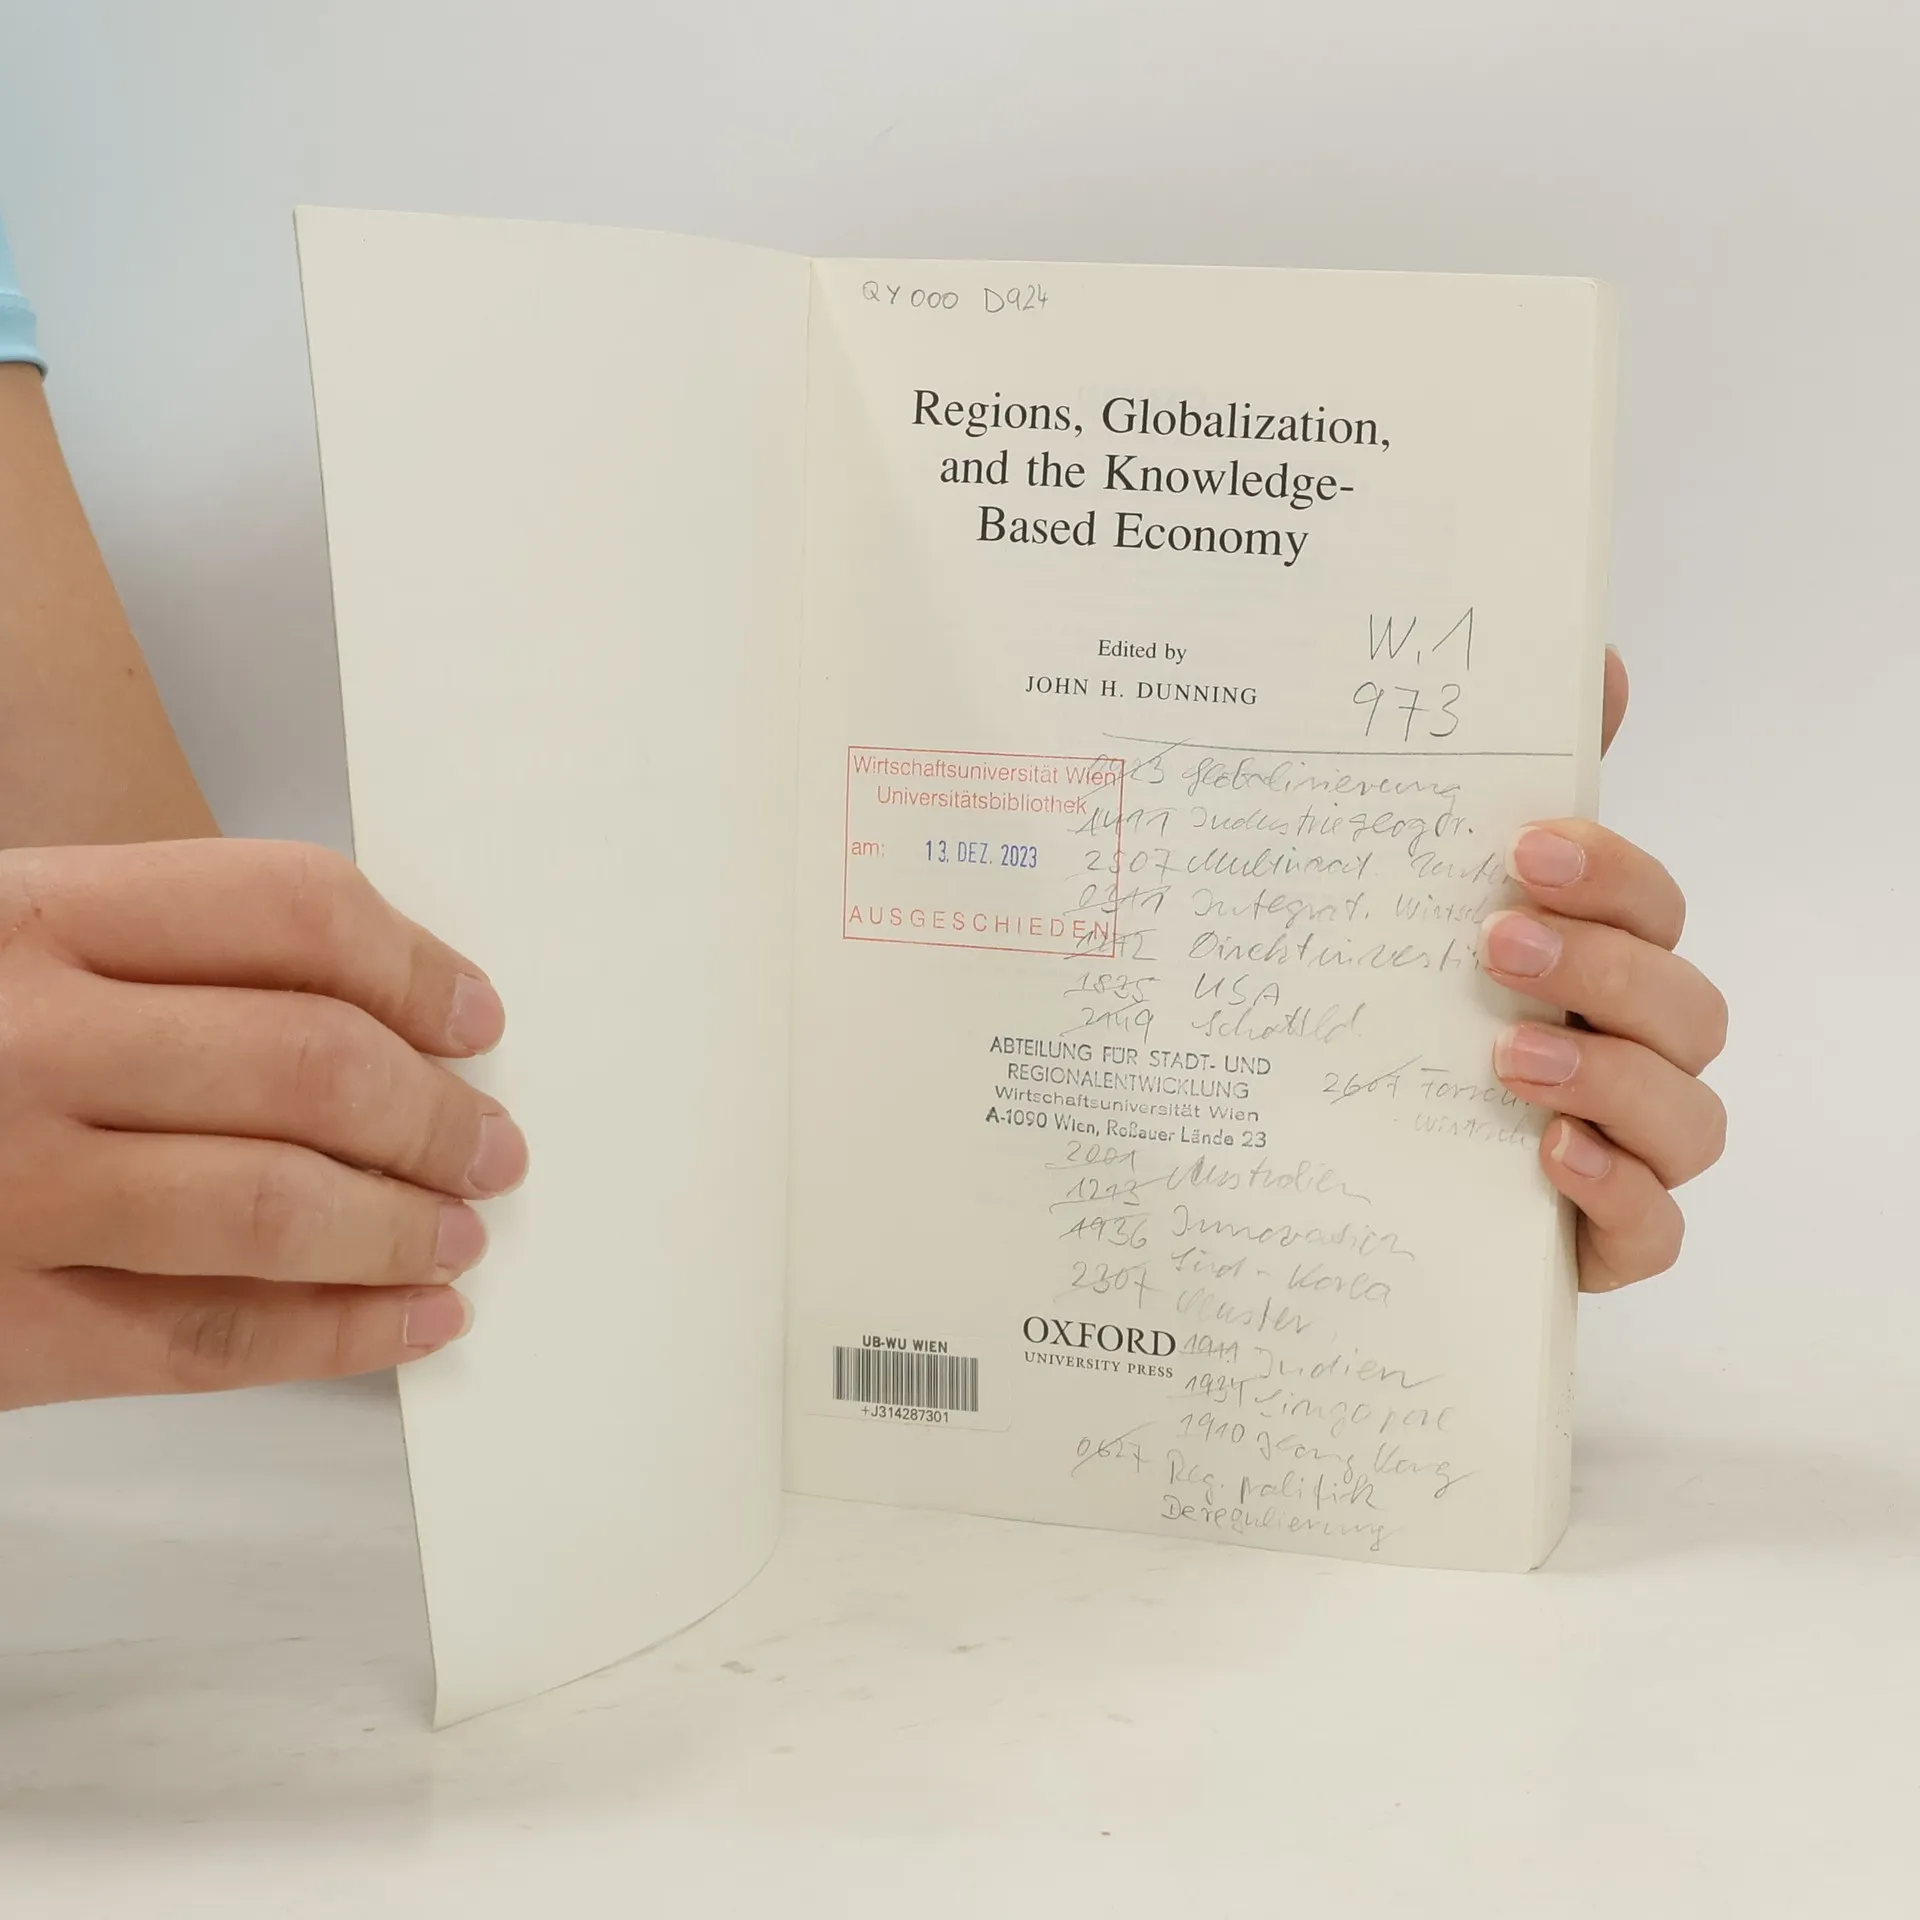 QY 000 D924
Regions, Globalization,
and the Knowledge-
Based Economy
Edited by
JOHN H. DUNNING
W.1
973
Wirtschaftsuniversität Wien
Universitätsbibliothek
am: 13. DEZ. 2023
AUSGESCHIEDEN
Globalisierung
1411 Industriegeogr.
2507 Multinat.
0311 Integrat.
Direktinvesti
1835 USA
2149
ABTEILUNG FÜR STADT- UND
REGIONALENTWICKLUNG
Wirtschaftsuniversität Wien
A-1090 Wien, Roßauer Lände 23
2607
2001 Australien
1213 Innovation
1936 Süd-Korea
2307 Cluster
OXFORD
UNIVERSITY PRESS
1911 Indien
1934 Singapore
1910 Hong Kong
0627 Reg. politik
Deregulierung
UB-WU WIEN
+J314287301